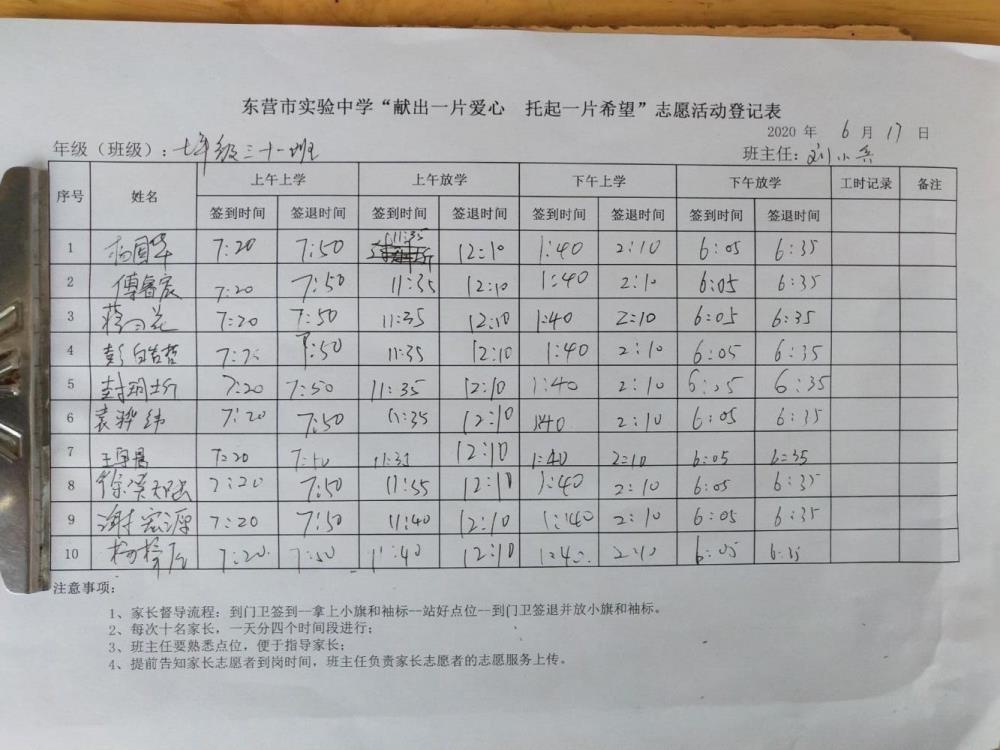 东营市实验中学“献出一片爱心 托起一片希望”志愿活动登记表
2020 年 6 月 17 日
年级（班级）：七年级三十一班 班主任：刘小兵
序号 姓名 上午上学 上午放学 下午上学 下午放学 工时记录 备注
签到时间 签退时间 签到时间 签退时间 签到时间 签退时间 签到时间 签退时间
1 杨国华 7:20 7:50 11:35 12:10 1:40 2:10 6:05 6:35
2 傅睿宸 7:20 7:50 11:35 12:10 1:40 2:10 6:05 6:35
3 7:20 7:50 11:35 12:10 1:40 2:10 6:05 6:35
4 7:2 7:50 11:35 12:10 1:40 2:10 6:05 6:35
5 7:20 7:50 11:35 12:10 1:40 2:10 6:05 6:35
6 袁骅纬 7:20 7:50 11:35 12:10 1:40 2:10 6:05 6:35
7 7:20 7:50 11:35 12:10 1:40 2:10 6:05 6:35
8 7:20 7:50 11:55 12:10 1:40 2:10 6:05 6:35
9 谢宏源 7:20 7:50 11:40 12:10 1:40 2:10 6:05 6:35
10 7:20 7:50 11:40 12:10 1:40 2:10 6:05 6:35
注意事项：
1、家长督导流程：到门卫签到--拿上小旗和袖标--站好点位--到门卫签退并放小旗和袖标。
2、每次十名家长，一天分四个时间段进行；
3、班主任要熟悉点位，便于指导家长；
4、提前告知家长志愿者到岗时间，班主任负责家长志愿者的志愿服务上传。